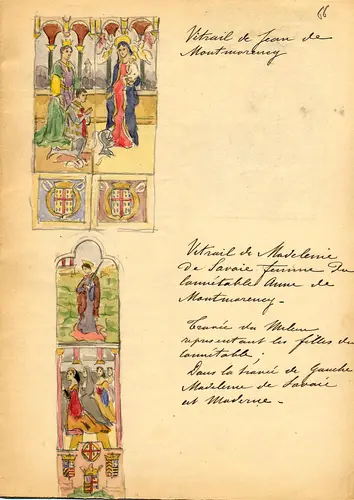 66
Vitrail de Jean de
Montmorency
Vitrail de Madeleine
de Savoie femme du
connétable Anne de
Montmorency -
Travée du Milieu
représentant les filles du
connétable ;
Dans la travée de Gauche
Madeleine de Savoie
est Moderne -